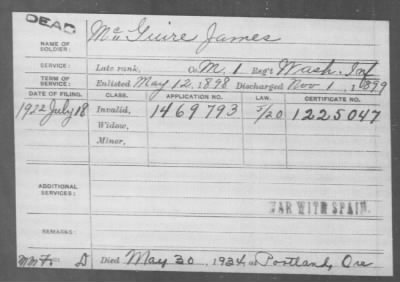 DEAD
NAME OF SOLDIER: McGuire James
SERVICE: Late rank, Co. M. 1 Reg't Wash. Inf
TERM OF SERVICE: Enlisted May 12, 1898 Discharged Nov 1, 1899
DATE OF FILING. CLASS. APPLICATION NO. LAW. CERTIFICATE NO.
1922 July 18 Invalid, 1469793 5/20 1225047
Widow,
Minor,
ADDITIONAL SERVICES:
WAR WITH SPAIN.
REMARKS:
D Died May 30, 1934, at Portland, Ore